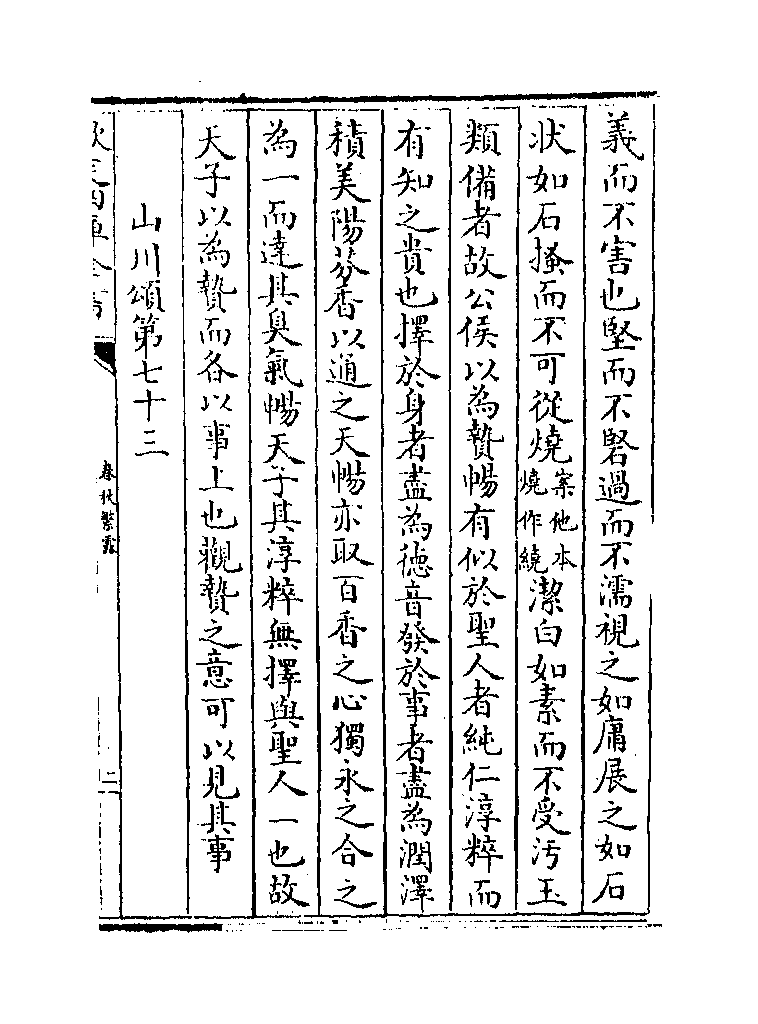 義而不害也堅而不䂾過而不濡視之如庸展之如石
狀如石搔而不可從燒案他本燒作繞潔白如素而不受汚玉
類備者故公侯以為贄暢有似於聖人者純仁淳粹而
有知之貴也擇於身者盡為徳音發於事者盡為潤澤
積美陽芬香以通之天暢亦取百香之心獨永之合之
為一而達其臭氣暢天子其淳粹無擇與聖人一也故
天子以為贄而各以事上也觀贄之意可以見其事
山川頌第七十三
欽定四庫全書
春秋繁露
二